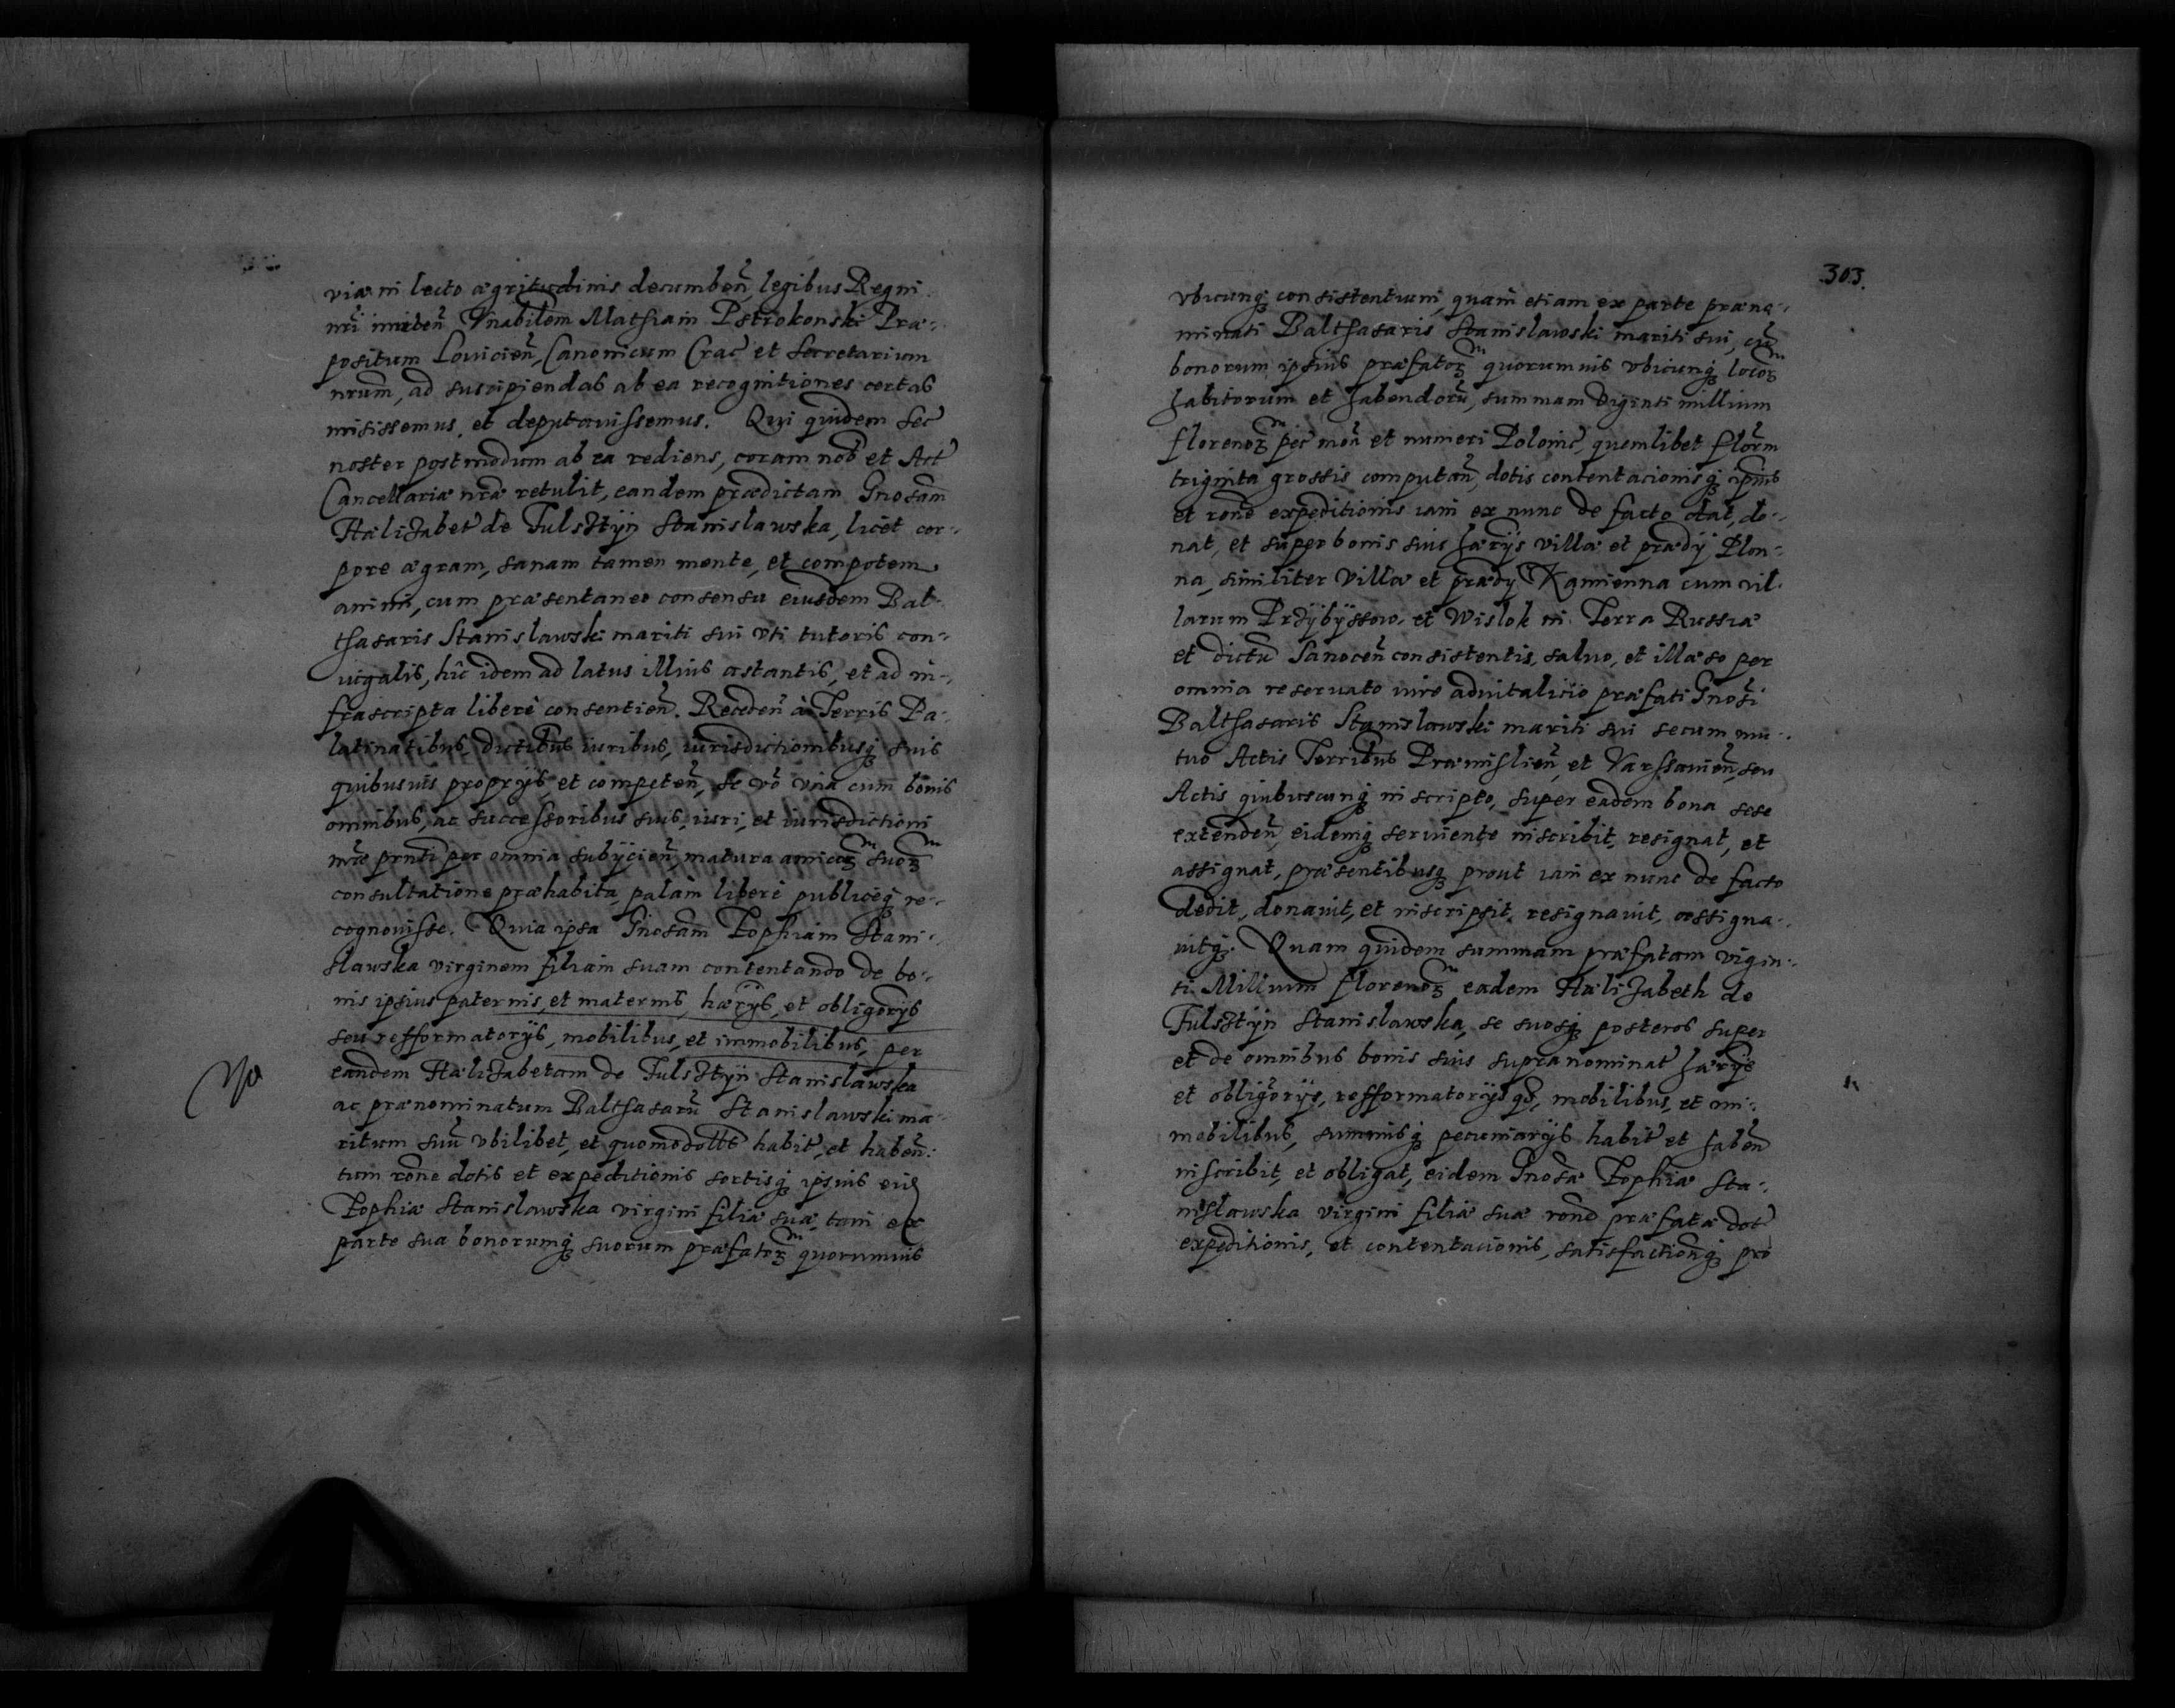 viæ in lecto ægritudinis decumbeñ, legibus Regni
nr̃i inniteñ Vnabilem Mathiam Pstrokonski Præ-
positum Louicieñ, Canonicum Crac̃ et Secretarium
nrum̃, ad suscipiendas ab ea recognitiones certas
misissemus, et deputauissemus. Qui quidem Sec̃
noster postmodum ab ea rediens, coram nob̃ et Act̃
Cancellariæ nr̃æ retulit, eandem prædictam Gnosam̃
Hælizabet̃ de Fulsztÿn Stanislawska, licèt cor-
pore ægram, sanam tamen mente, et compotem
animi, cum præsentaneo consensu eiusdem Bal-
thasaris Stanislawski mariti sui vti tutoris con-
iugalis, hîc idem ad latus illius astantis, et ad in-
frascripta liberè consentieñ. Recedeñ à Terris Pa-
latinatibus, dictibus iuribus, iurisdictionibusq̃ suis
quibusuis proprÿs et competeñ, se võ vna cum bonis
omnibus, ac successoribus suis, iuri, et iurisdictioni
nr̃æ prñti per omnia subÿcieñ, matura amicoꝝ suoꝝ
consultatione præhabita, palàm liberè publicéq̃ re-
cognouisse. Quia ipsa Gnosam̃ Zophiam Stani-
slawska virginem filiam suam contentando de bo-
nis ipsius paternis, et maternis, hærÿs, et obligorÿs
seu refformatorÿs, mobilibus, et immobilibus, per
eandem Hælizabetam de Fulsztÿn Stanislawska
ac prænominatum Balthasarũ Stanislawski ma-
ritum suũ vbilibet, et quomodolbt̃ habit̃, et habeñ.
tum roñe dotis et expeditionis sortisq̃ ipsius eid̃
Zophiæ Stanislawska virgini filiæ suæ, tam ex
parte sua bonorumq̃ suorum præfatoꝝ quorumuis
303.
vbicunq̃ consistentium, quam etiam ex parte præno-
minati Balthasaris Stanislawski mariti sui, eũ
bonorum ipsius præfatoꝝ quorumuis vbicunq̃ locoꝝ
habitorum et habendorũ, summam Viginti millium
florenoꝝ pec̃ moñ et numeri Polonic̃, quemlibet flor̃m
triginta grossis computañ, dotis contentacionisq̃ ipsius
et roñe expeditionis iam ex nunc de facto dat, do-
nat, et super bonis suis hærÿs villæ et prædÿ Plon-
na, similiter villæ et prædÿ Kamienna cum vil-
larum Przÿbÿssow et Wislok in Terra Russiæ
et dictũ Sanoceñ consistentis, saluo, et illæso per
omnia reseruato iure aduitalicio præfati Gnosi
Balthasaris Stanislawski mariti sui secum mu-
tuo Actis Terribus Præmislieñ, et Varssauieñ, seu
Actis quibuscunq̃ inscripto, super eadem bona sese
extendeñ, eidemq̃ seruiente inscribit, resignat, et
assignat, præsentibusq̃ prout iam ex nunc de facto
dedit, donauit, et inscripsit, resignauit, assigna-
uitq̃. Quam quidem summam præfatam vigin-
ti Millium florenoꝝ eadem Hælizabeth de
Fulsztÿn Stanislawska, se suosq̃ posteros super
et de omnibus bonis suis supranominat̃ hærÿs
et obligorÿs, refformatorÿsq̃, mobilibus, et im-
mobilibus, summisq̃ pecuniarÿs habit̃ et habeñ
inscribit, et obligat, eidem Gnosæ Zophiæ Sta-
nislawska virgini filiæ suæ roñe præfatæ dot̃
expeditionis, et contentacionis, satisfactionq̃ pro